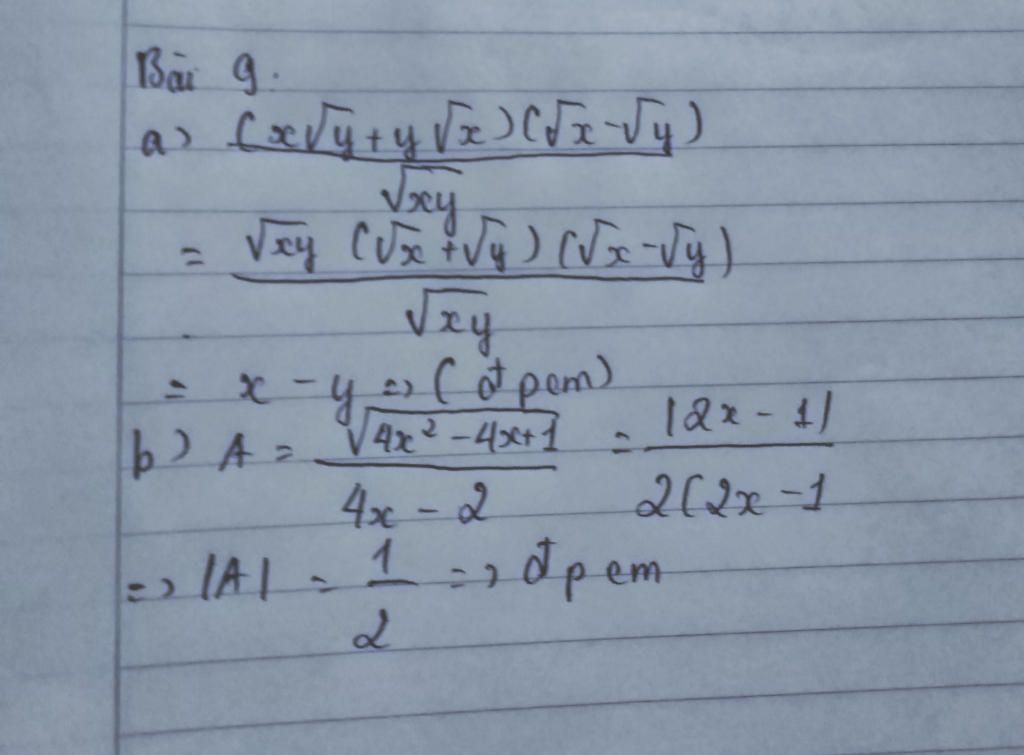 Bài 9.
a) (x√y + y√x)(√x - √y)
√xy
= √xy (√x + √y)(√x - √y)
√xy
= x - y => (đpcm)
b) A = √4x² - 4x + 1 = |2x - 1|
4x - 2 2(2x - 1
=> |A| = 1 => đpcm
2